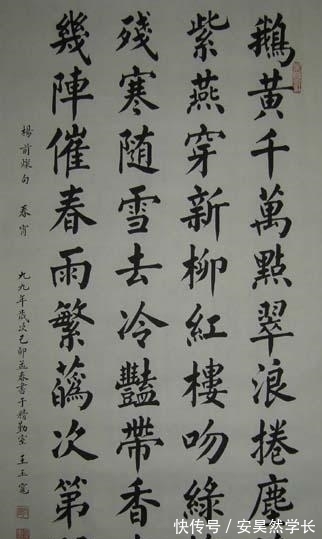 鵝黃千萬點翠浪捲塵
紫燕穿新柳紅樓吻綠
殘寒随雪去冷豔帶香
幾陣催春雨繁蘤次第
楊前燦句 春宵 九九年歲次己卯孟春書于精勤室 王玉寬
快传号／安昊然学长